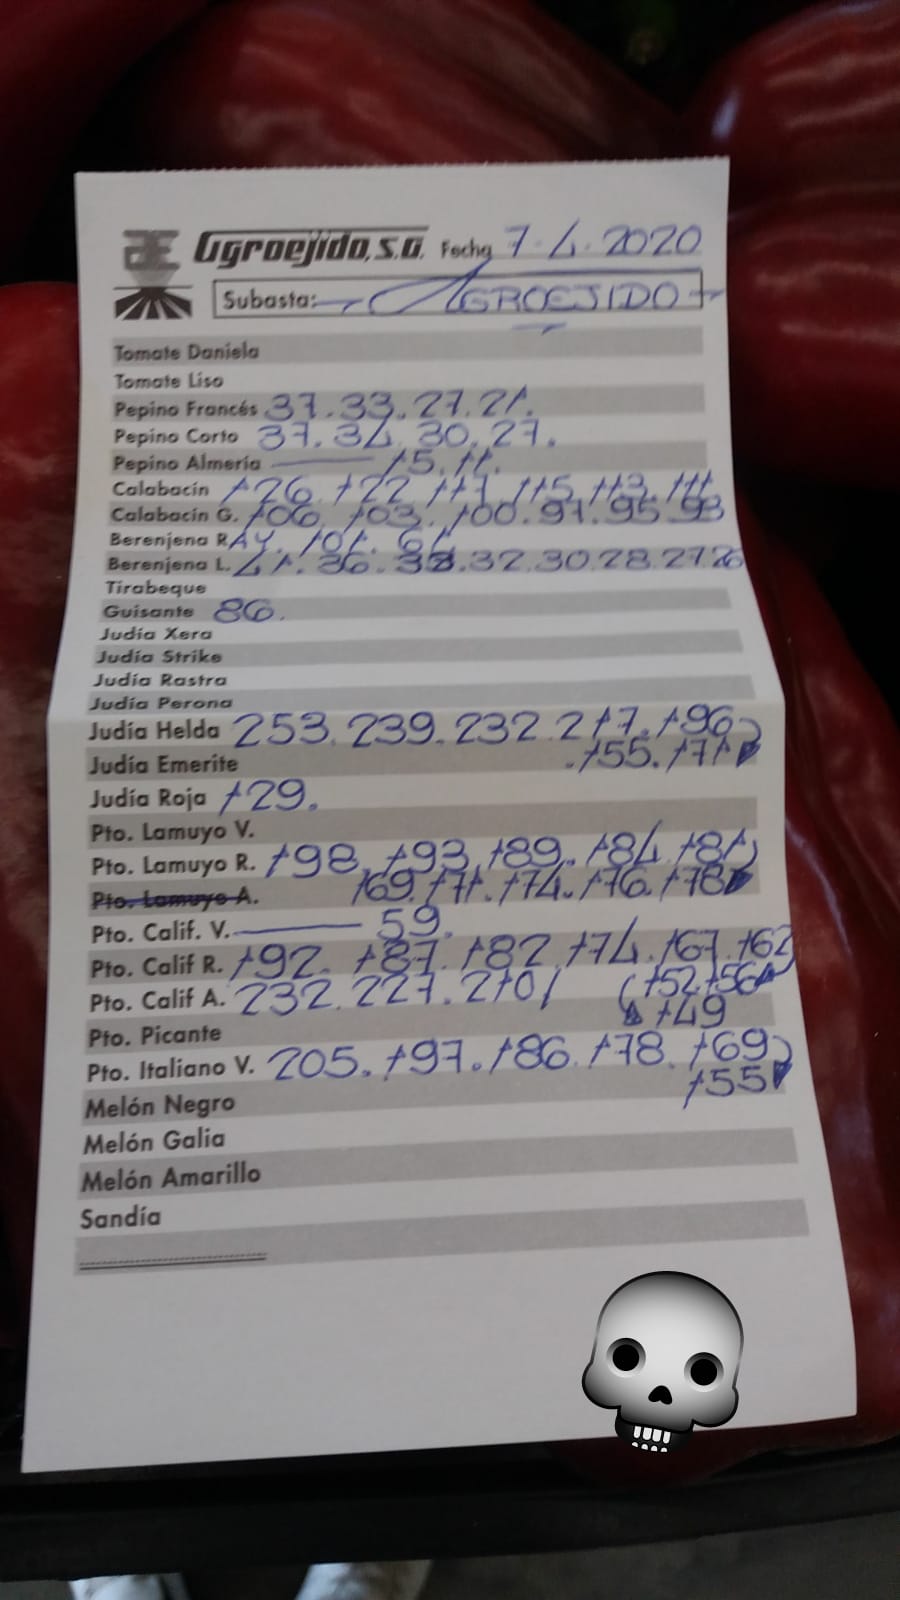 Agroejido, S.A. Fecha 7-4-2020
Subasta: AGROEJIDO
Tomate Daniela
Tomate Liso
Pepino Francés 37.33.27.21.
Pepino Corto 37.34.30.27.
Pepino Almería 15.11.
Calabacín 126.122.117.115.113.111
Calabacín G. 106.103.100.97.95.93
Berenjena RAY. 101. 61
Berenjena L. 41.36.33.32.30.28.27.26
Tirabeque
Guisante 86.
Judía Xera
Judía Strike
Judía Rastra
Judía Perona
Judía Helda 253.239.232.217.196
Judía Emerite .155.171
Judía Roja 129.
Pto. Lamuyo V.
Pto. Lamuyo R. 198.193.189.184.181
Pto. Lamuyo A. 169.171.174.176.178
Pto. Calif. V. 59.
Pto. Calif R. 192.187.182.174.167.162
Pto. Calif A. 232.227.210/ (152.156
Pto. Picante 149
Pto. Italiano V. 205.197.186.178.169
155
Melón Negro
Melón Galia
Melón Amarillo
Sandía